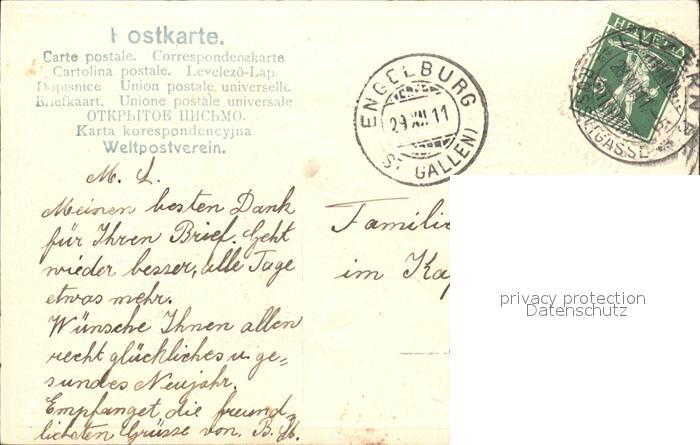 Postkarte.
Carte postale. Correspondenzkarte
Cartolina postale. Levelező-Lap.
Dopisnice Union postale universelle
Briefkaart. Unione postale universale
ОТКРЫТОЕ ПИСЬМО.
Karta korespondencyjna
Weltpostverein.
HELVETIA
ENGELBURG
29 XII 11
(ST GALLEN)
GASSE
M. L.
Meinen besten Dank
für Ihren Brief. Geht
wieder besser, alle Tage
etwas mehr.
Wünsche Ihnen allen
recht glückliches u. ge=
sundes Neujahr.
Empfanget die freund=
lichsten Grüsse von. B. H.
Familie
im
privacy protection
Datenschutz